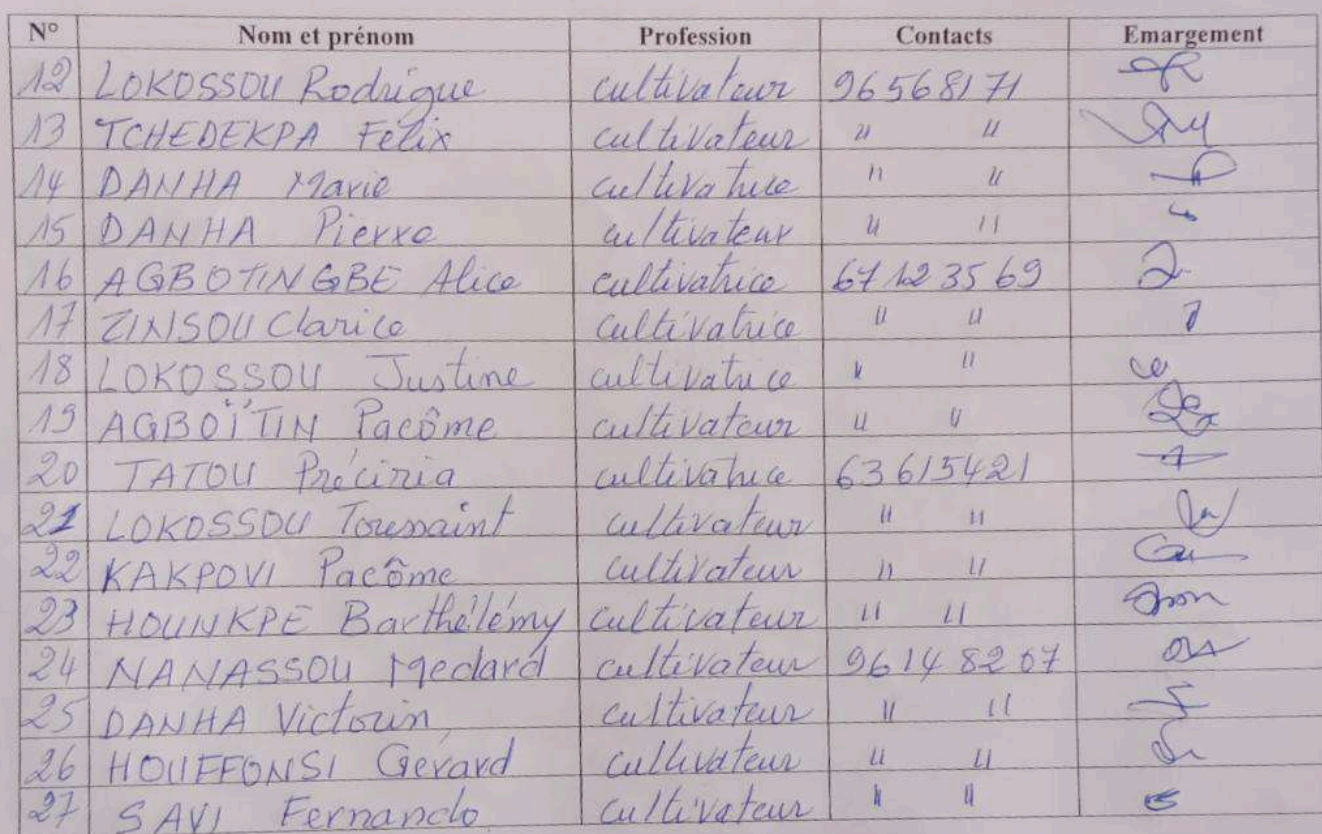 N° Nom et prénom Profession Contacts Emargement
12 LOKOSSOU Rodrigue cultivateur 96568171
13 TCHEDEKPA Félix cultivateur " "
14 DANHA Marie cultivatrice " "
15 DANHA Pierre cultivateur " "
16 AGBOTINGBE Alice cultivatrice 67 12 35 69
17 ZINSOU Clarice cultivatrice " "
18 LOKOSSOU Justine cultivatrice " "
19 AGBOÏTIN Pacôme cultivateur " "
20 TATOU Préciria cultivatrice 63615421
21 LOKOSSOU Toussaint cultivateur " "
22 KAKPOVI Pacôme cultivateur " "
23 HOUNKPE Barthélémy cultivateur " "
24 NANASSOU Medard cultivateur 96148207
25 DANHA Victorin cultivateur " "
26 HOUEFFONSI Gérard cultivateur " "
27 SAVI Fernando cultivateur " "